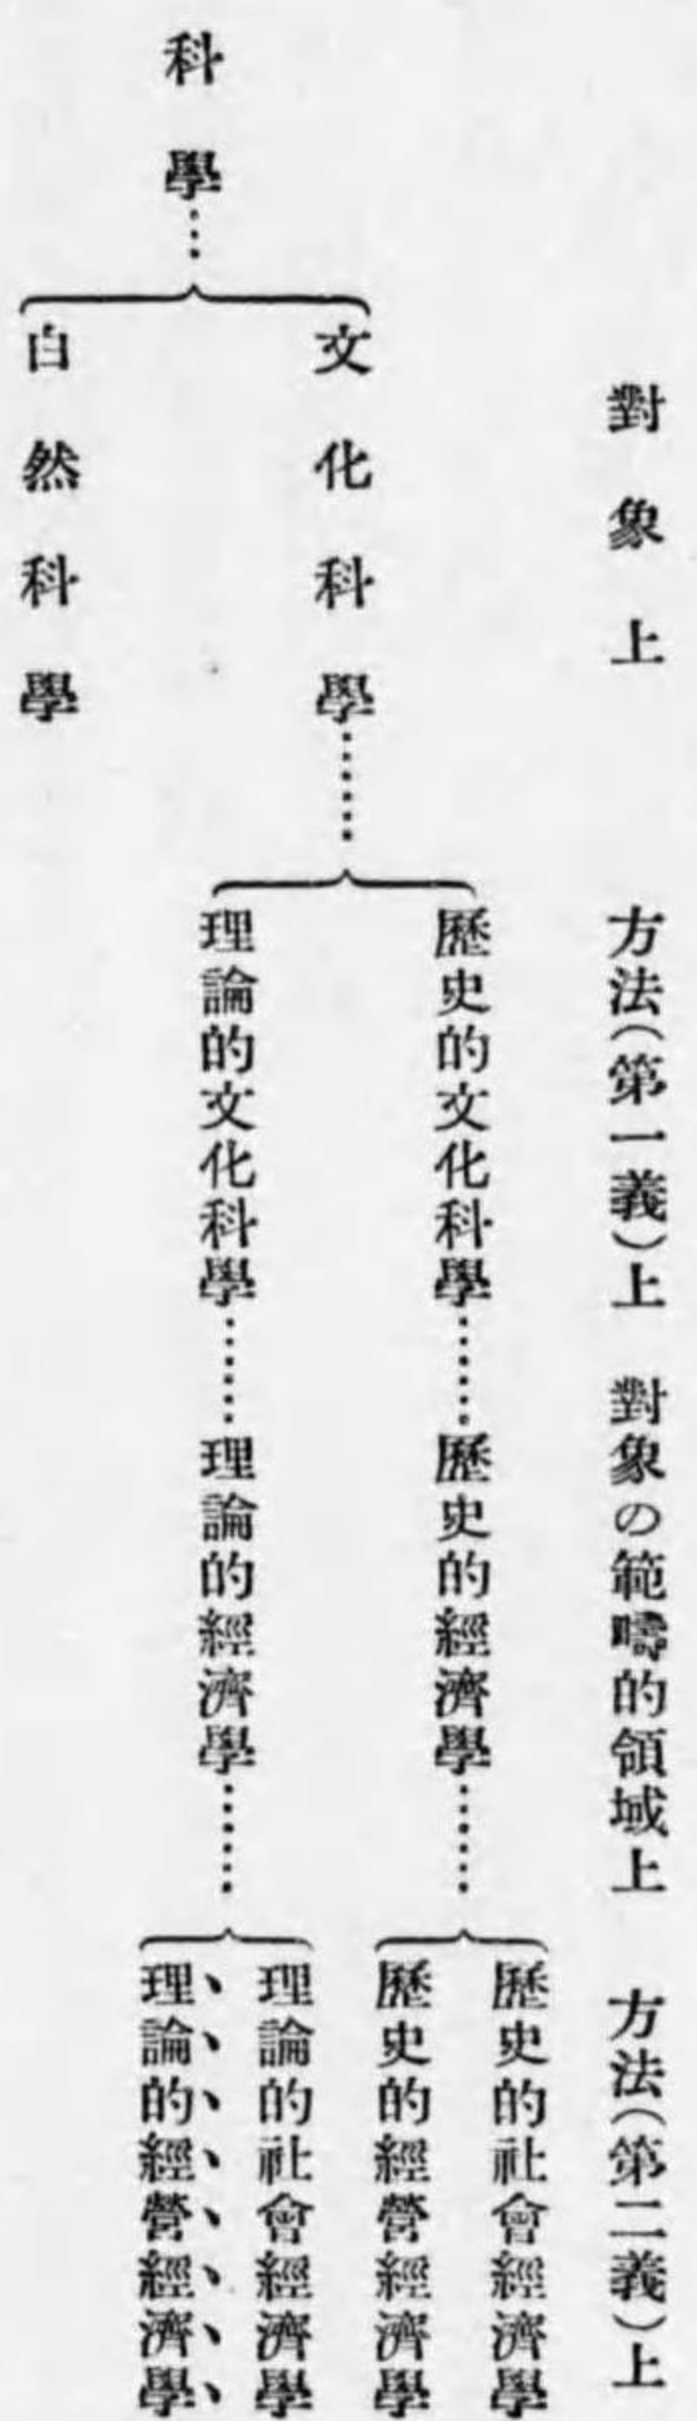 對象上　方法（第一義）上　對象の範疇的領域上　方法（第二義）上
歷史的文化科學……歷史的經濟學……
歷史的社會經濟學
歷史的經營經濟學
文化科學……
理論的文化科學……理論的經濟學……
理論的社會經濟學
理論的經營經濟學
科學…
自然科學